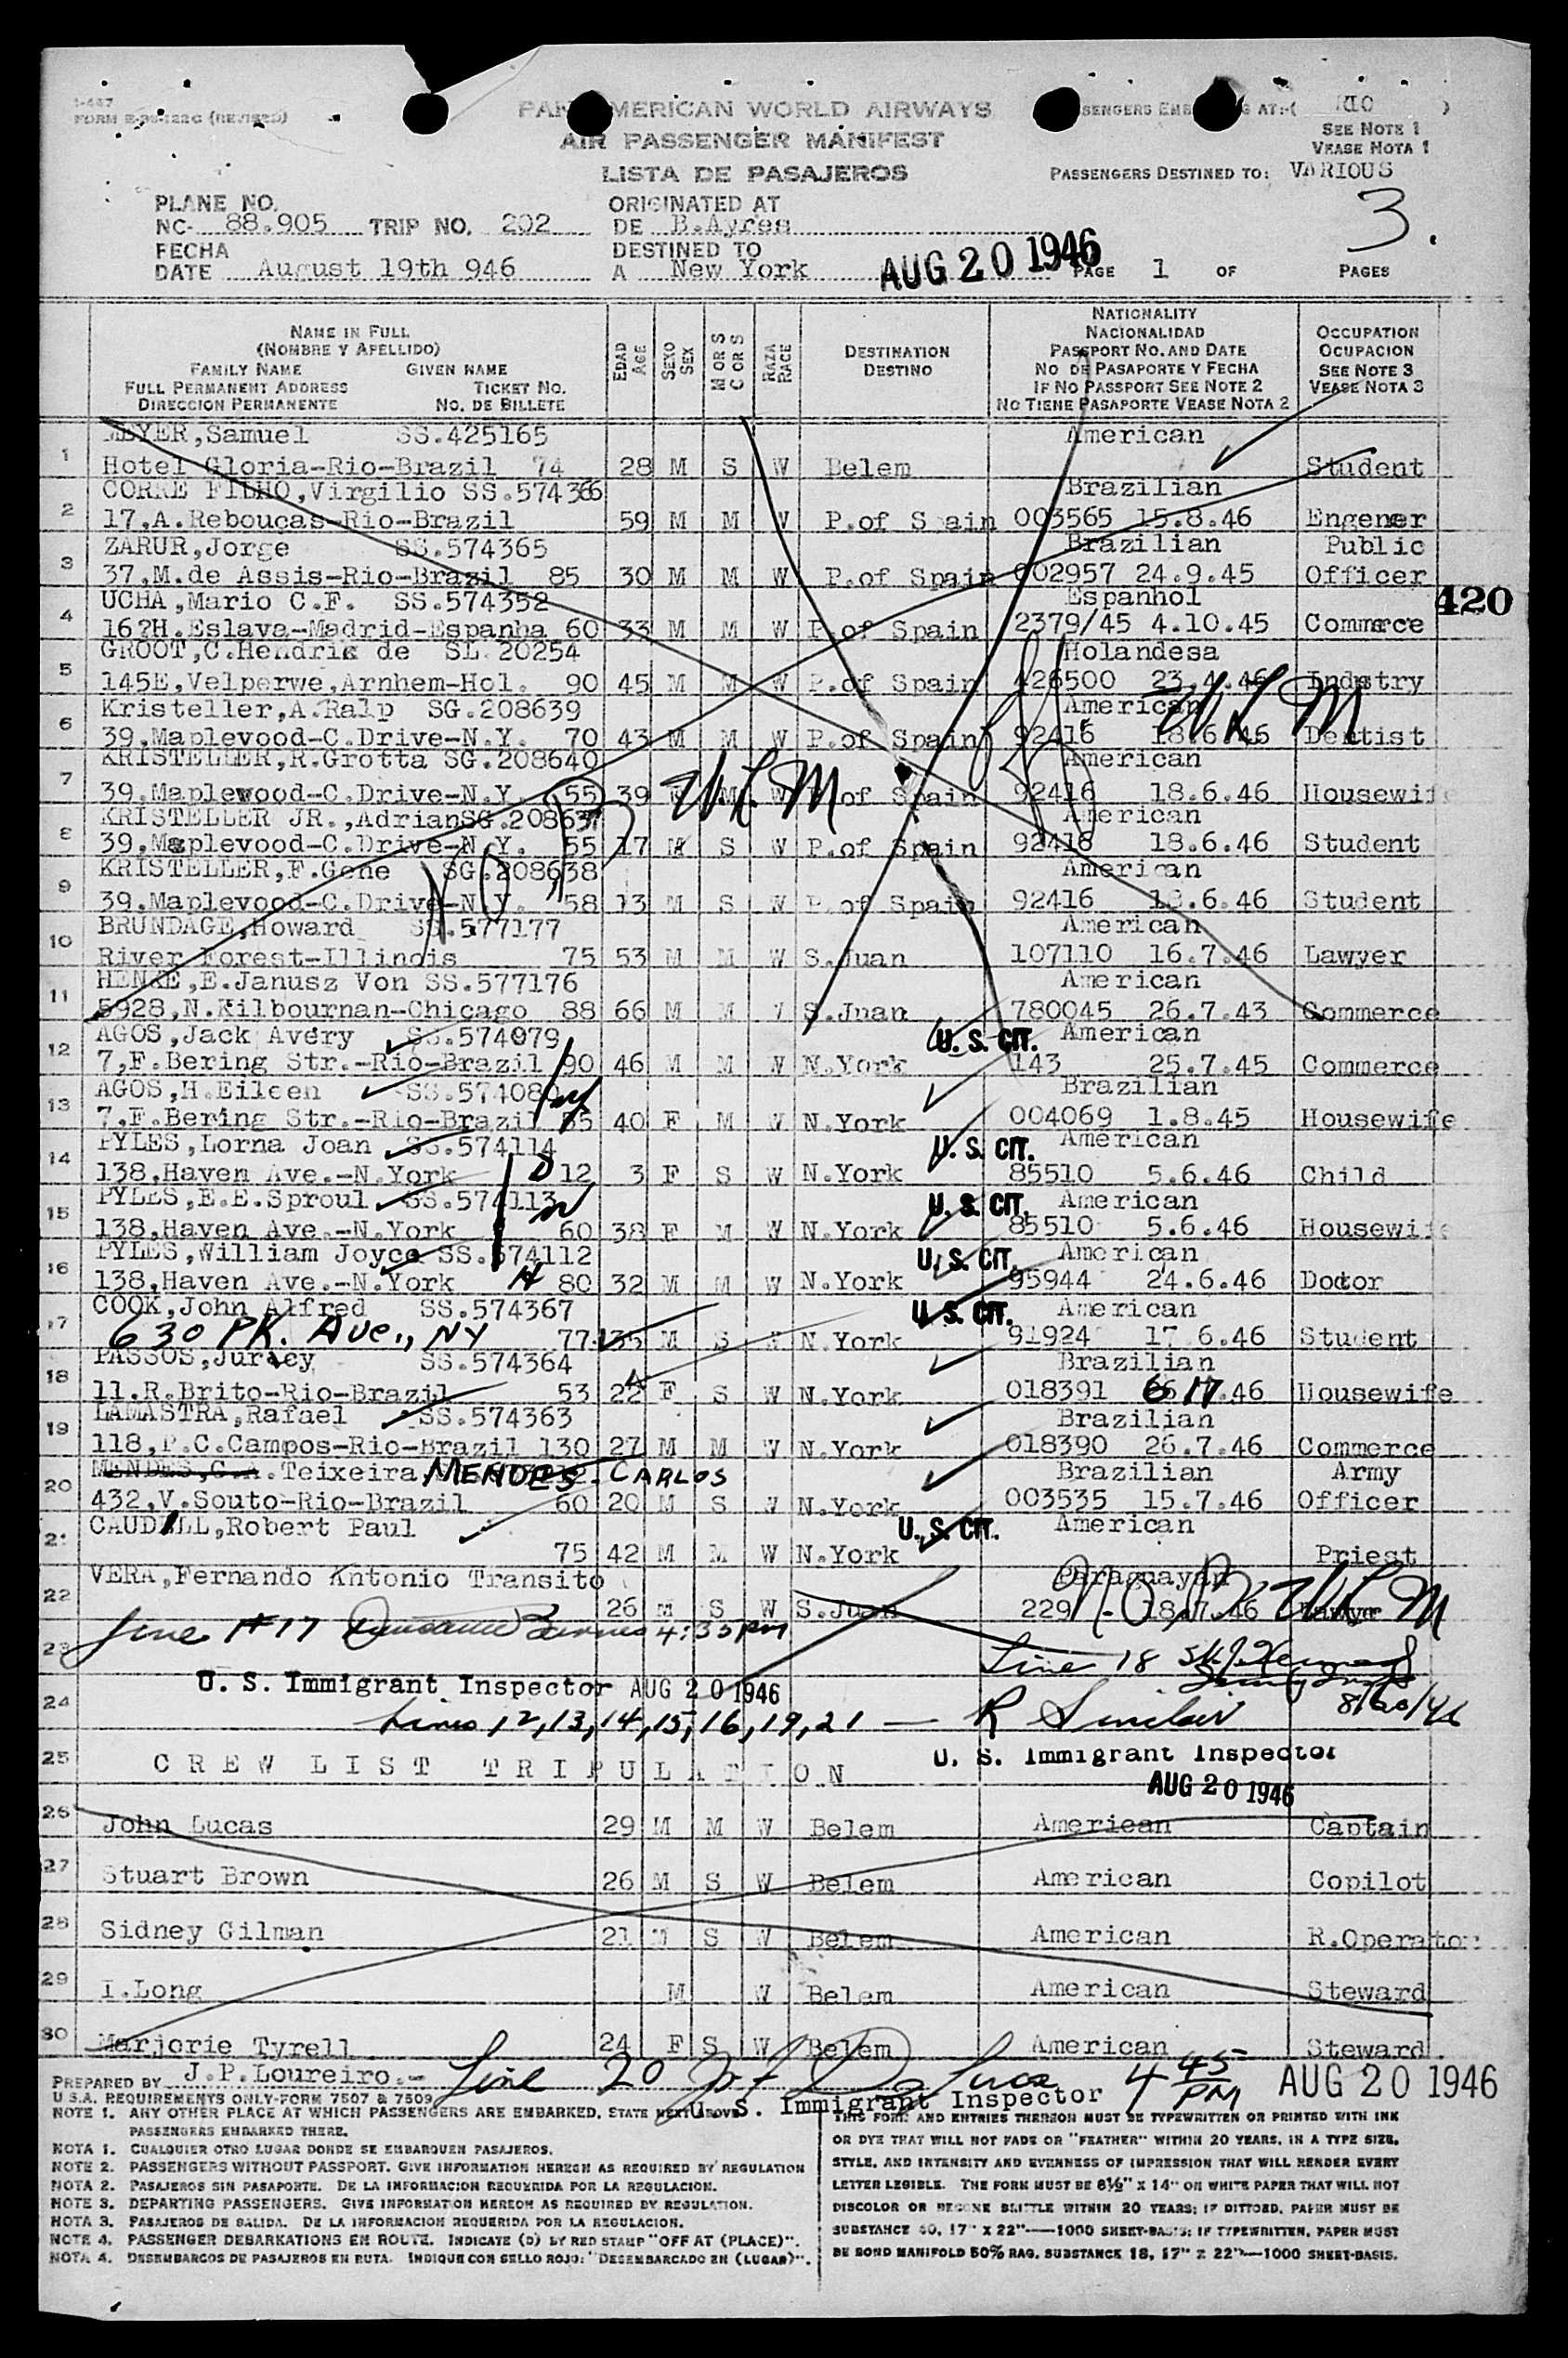 I-447
FORM E-96-122G (REVISED)
PAN AMERICAN WORLD AIRWAYS
AIR PASSENGER MANIFEST
LISTA DE PASAJEROS
PASSENGERS EMBARKING AT:-( RIO )
SEE NOTE 1
VEASE NOTA 1
PASSENGERS DESTINED TO: VARIOUS
3.
PLANE NO. ORIGINATED AT
NC- 88.905 TRIP NO. 202 DE B.Ayres
FECHA DESTINED TO
DATE August 19th 946 A New York AUG 20 1946 PAGE 1 OF PAGES
NAME IN FULL
(NOMBRE Y APELLIDO)
FAMILY NAME GIVEN NAME
FULL PERMANENT ADDRESS TICKET NO.
DIRECCION PERMANENTE NO. DE BILLETE
EDAD AGE
SEXO SEX
M OR S C OR S
RAZA RACE
DESTINATION DESTINO
NATIONALITY
NACIONALIDAD
PASSPORT NO. AND DATE
NO DE PASAPORTE Y FECHA
IF NO PASSPORT SEE NOTE 2
NO TIENE PASAPORTE VEASE NOTA 2
OCCUPATION
OCUPACION
SEE NOTE 3
VEASE NOTA 3
1 MEYER,Samuel SS.425165 American
Hotel Gloria-Rio-Brazil 74 28 M S W Belem Student
2 CORRE FILHO,Virgilio SS.574366 Brazilian
17,A.Rebouças-Rio-Brazil 59 M M W P.of Spain 003565 15.8.46 Engener
3 ZARUR,Jorge SS.574365 Brazilian Public
37,M.de Assis-Rio-Brazil 85 30 M M W P.of Spain 002957 24.9.45 Officer
4 UCHA,Mario C.F. SS.574352 Espanhol
16?H.Eslava-Madrid-Espanha 60 33 M M W P.of Spain 2379/45 4.10.45 Commerce
420
5 GROOT,C.Hendrik de SL 20254 Holandesa
145E,Velperwe,Arnhem-Hol. 90 45 M M W P.of Spain 426500 23.4.46 Industry
6 Kristeller,A.Ralp SG.208639 American
39,Maplevood-C.Drive-N.Y. 70 43 M M W P.of Spain 92416 18.6.46 Dentist
W L M
7 KRISTELLER,R.Grotta SG.208640 American
39,Maplewood-C.Drive-N.Y. 55 39 M W P.of Spain 92416 18.6.46 Housewife
W.L.M
8 KRISTELLER JR.,Adrian SG.208637 American
39,Maplevood-C.Drive-N.Y. 55 17 M S W P.of Spain 92416 18.6.46 Student
9 KRISTELLER,F.Gene SG.208638 American
39,Maplevood-C.Drive-N.Y. 58 13 M S W P.of Spain 92416 18.6.46 Student
10 BRUNDAGE,Howard SS.577177 American
River Forest-Illinois 75 53 M M W S.Juan 107110 16.7.46 Lawyer
11 HENKE,E.Janusz Von SS.577176 American
5928,N.Kilbournan-Chicago 88 66 M M W S.Juan 780045 26.7.43 Commerce
12 AGOS,Jack Avery SS.574079 U.S. CIT. American
7,F.Bering Str.-Rio-Brazil 90 46 M M W N.York 143 25.7.45 Commerce
13 AGOS,H.Eileen SS.574080 Brazilian
7,F.Bering Str.-Rio-Brazil 55 40 F M W N.York 004069 1.8.45 Housewife
14 PYLES,Lorna Joan SS.574114 U.S. CIT. American
138,Haven Ave.-N.York D 12 3 F S W N.York 85510 5.6.46 Child
15 PYLES,E.E.Sproul SS.574113 U.S. CIT. American
138,Haven Ave.-N.York W 60 38 F M W N.York 85510 5.6.46 Housewife
16 PYLES,William Joyce SS.574112 U.S. CIT. American
138,Haven Ave.-N.York H 80 32 M M W N.York 95944 24.6.46 Doctor
17 COOK,John Alfred SS.574367 U.S. CIT. American
630 PK. Ave., NY 77 35 M S W N.York 91924 17.6.46 Student
18 PASSOS,Juracy SS.574364 Brazilian
11.R.Brito-Rio-Brazil 53 22 F S W N.York 018391 6 17.46 Housewife
19 LAMASTRA,Rafael SS.574363 Brazilian
118,P.C.Campos-Rio-Brazil 130 27 M M W N.York 018390 26.7.46 Commerce
20 MENDES,C.A.Teixeira MENDES. CARLOS Brazilian Army
432,V.Souto-Rio-Brazil 60 20 M S W N.York 003535 15.7.46 Officer
21 CAUDILL,Robert Paul U.S. CIT. American
75 42 M M W N.York Priest
22 VERA,Fernando Antonio Transito Paraguayan
26 M S W S.Juan 229 - 18.7.46 Lawyer
W L M
23 Line #17 4:35 PM
Line 18
U. S. Immigrant Inspector AUG 20 1946
8/20/46
24 Lines 12,13,14,15,16,19,21 — R Sinclair
25 CREW LIST TRIPULATION U. S. Immigrant Inspector
AUG 20 1946
26 John Lucas 29 M M W Belem American Captain
27 Stuart Brown 26 M S W Belem American Copilot
28 Sidney Gilman 21 M S W Belem American R.Operator
29 I.Long M W Belem American Steward
30 Marjorie Tyrell 24 F S W Belem American Steward
PREPARED BY J.P.Loureiro.- Line 20 4 45 PM AUG 20 1946
U. S. Immigrant Inspector
U.S.A. REQUIREMENTS ONLY-FORM 7507 & 7509
NOTE 1. ANY OTHER PLACE AT WHICH PASSENGERS ARE EMBARKED, STATE NEXT ABOVE
PASSENGERS EMBARKED THERE.
NOTA 1. CUALQUIER OTRO LUGAR DONDE SE EMBARQUEN PASAJEROS.
NOTE 2. PASSENGERS WITHOUT PASSPORT. GIVE INFORMATION HEREON AS REQUIRED BY REGULATION
NOTA 2. PASAJEROS SIN PASAPORTE. DE LA INFORMACION REQUERIDA POR LA REGULACION.
NOTE 3. DEPARTING PASSENGERS. GIVE INFORMATION HEREON AS REQUIRED BY REGULATION.
NOTA 3. PASAJEROS DE SALIDA. DE LA INFORMACION REQUERIDA POR LA REGULACION.
NOTE 4. PASSENGER DEBARKATIONS EN ROUTE. INDICATE (D) BY RED STAMP "OFF AT (PLACE)".
NOTA 4. DESEMBARCOS DE PASAJEROS EN RUTA. INDIQUE CON SELLO ROJO: "DESEMBARCADO EN (LUGAR)".
THIS FORM AND ENTRIES THEREON MUST BE TYPEWRITTEN OR PRINTED WITH INK
OR DYE THAT WILL NOT FADE OR "FEATHER" WITHIN 20 YEARS, IN A TYPE SIZE,
STYLE, AND INTENSITY AND EVENNESS OF IMPRESSION THAT WILL RENDER EVERY
LETTER LEGIBLE. THE FORM MUST BE 8½" X 14" ON WHITE PAPER THAT WILL NOT
DISCOLOR OR BECOME BRITTLE WITHIN 20 YEARS; IF DITTOED, PAPER MUST BE
SUBSTANCE 40, 17" X 22"—1000 SHEET-BASIS; IF TYPEWRITTEN, PAPER MUST
BE BOND MANIFOLD 50% RAG, SUBSTANCE 18, 17" X 22"—1000 SHEET-BASIS.